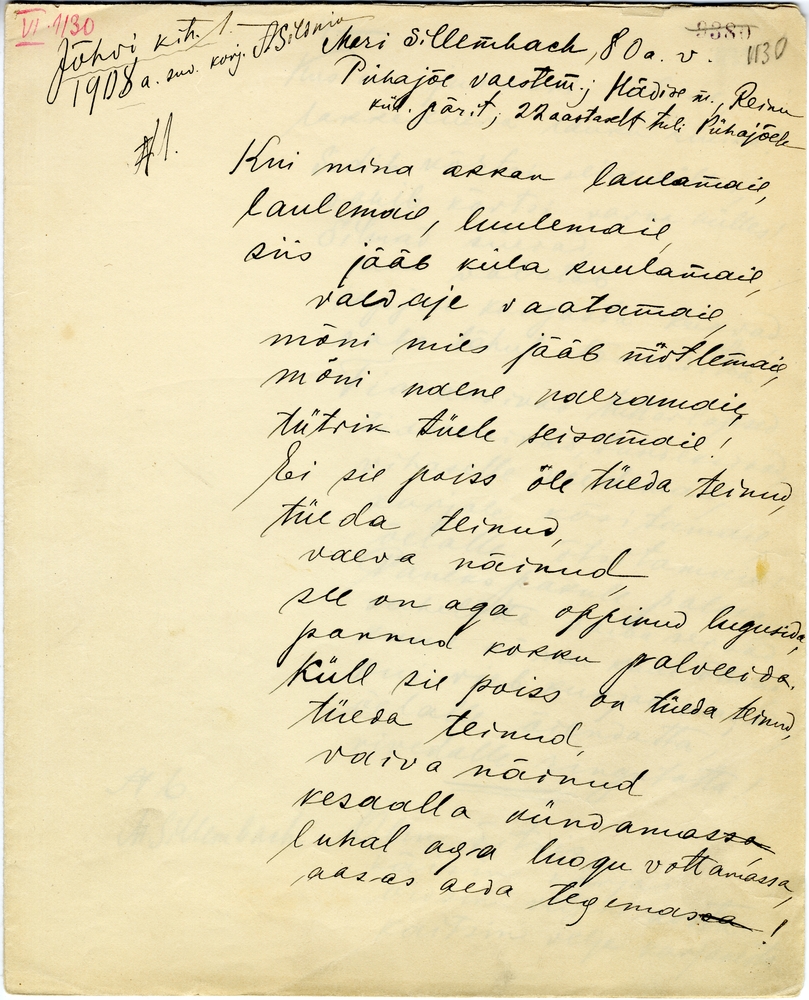 VI 1/30
9389
1130
Jõhvi kih. 1.
1908 a. suv. korj.
Mari Sillembach, 80 a. v.
Pühajõe vaestem.; Hädise m., Reinu
kül. pärit, 22 aastaselt tuli Pühajõele
№1.
Kui mina akkan laulamaie,
laulemaie, luulemaie,
siis jääb küla kuulamaie,
valdaje vaatamaie,
mõni mies jääb mõtlemaie,
mõni naene naeramaie,
tütrik tüele seisamaie!
Ei sie poiss õle tüeda teinud,
tüeda teinud,
vaeva näinud,
see on aga oppinud lugusida,
pannud kokku palveeida.
Küll sie poiss on tüeda teinud,
tüeda teinud,
vaiva näinud
kesaalla kündamassa,
luhal aga luogu vottamassa,
aasas aeda tegemassa!